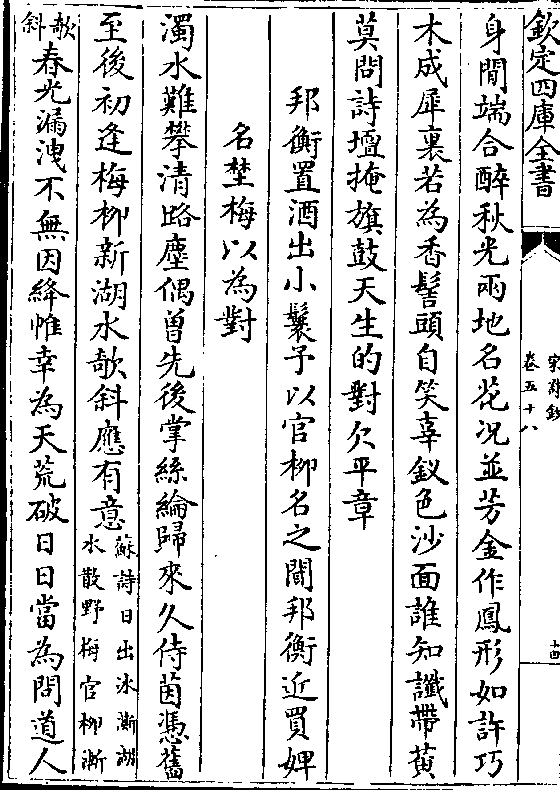 欽定四庫全書
宋詩鈔
卷五十八
十四
身閒端合醉秋光兩地名花况並芳金作鳳形如許巧
木成犀裏若為香髻頭自笑辜釵色沙面誰知讖帶黄
莫問詩壇掩旗鼓天生的對欠平章
邦衡置酒出小鬟予以官柳名之聞邦衡近買婢
名埜梅以為對
濁水難攀清路塵偶曾先後掌絲綸歸來久侍茵憑舊
至後初逢梅柳新湖水欹斜應有意蘇詩日出冰澌湖水散野梅官柳漸
欹斜春光漏洩不無因絳帷幸為天荒破日日當為問道人